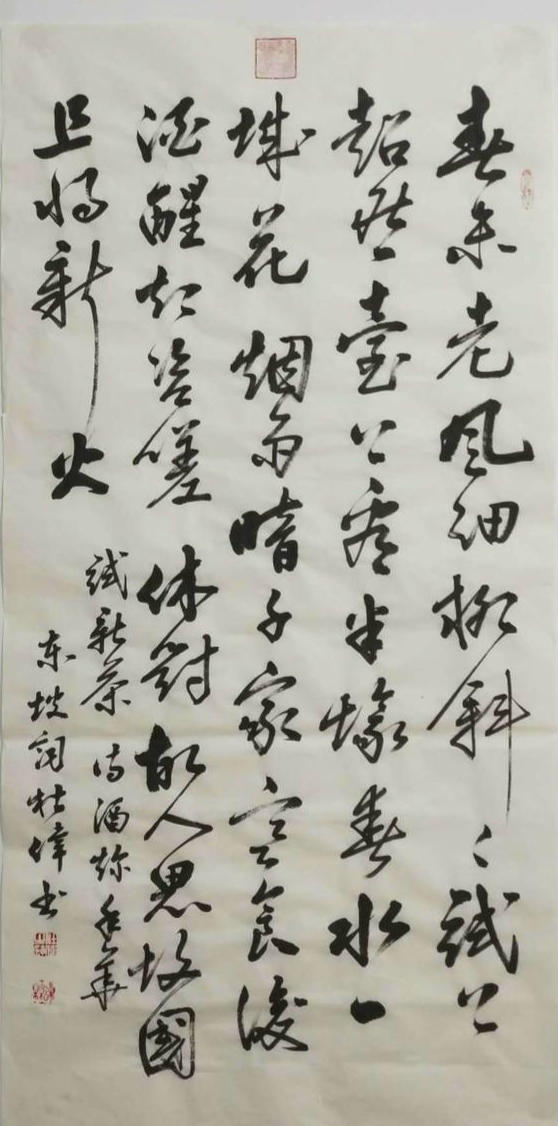 春未老风细柳斜々試上
超然臺上看半壕春水一
城花烟雨暗千家寒食後
酒醒却咨嗟休對故人思故國
且将新火
試新茶诗酒趁年華
东坡詞杜书